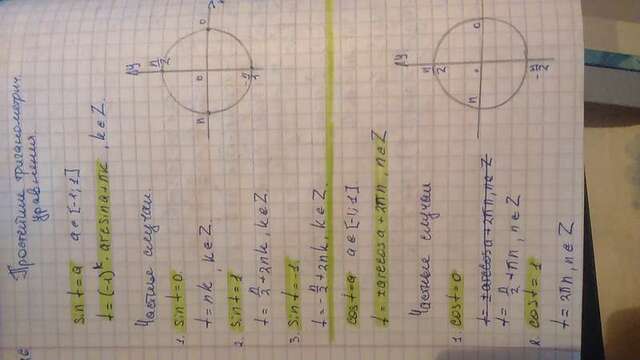 Простейшие тригонометрич.
уравнения.
sin t = a a ∈ [-1;1]
t = (-1)^k · arcsin a + πk, k ∈ Z.
Частные случаи.
1. sin t = 0.
t = πk, k ∈ Z.
2. sin t = 1
t = π/2 + 2πk, k ∈ Z.
3. sin t = -1
t = -π/2 + 2πk, k ∈ Z.
y
π/2
π 0 0
-π/2
cos t = a a ∈ [-1;1]
t = ±arccos a + 2πn, n ∈ Z
Частные случаи
1. cos t = 0
t = ±arccos a + 2πn, n ∈ Z
t = π/2 + πn, n ∈ Z
2. cos t = 1
t = 2πn, n ∈ Z
y
π/2
π 0
-π/2